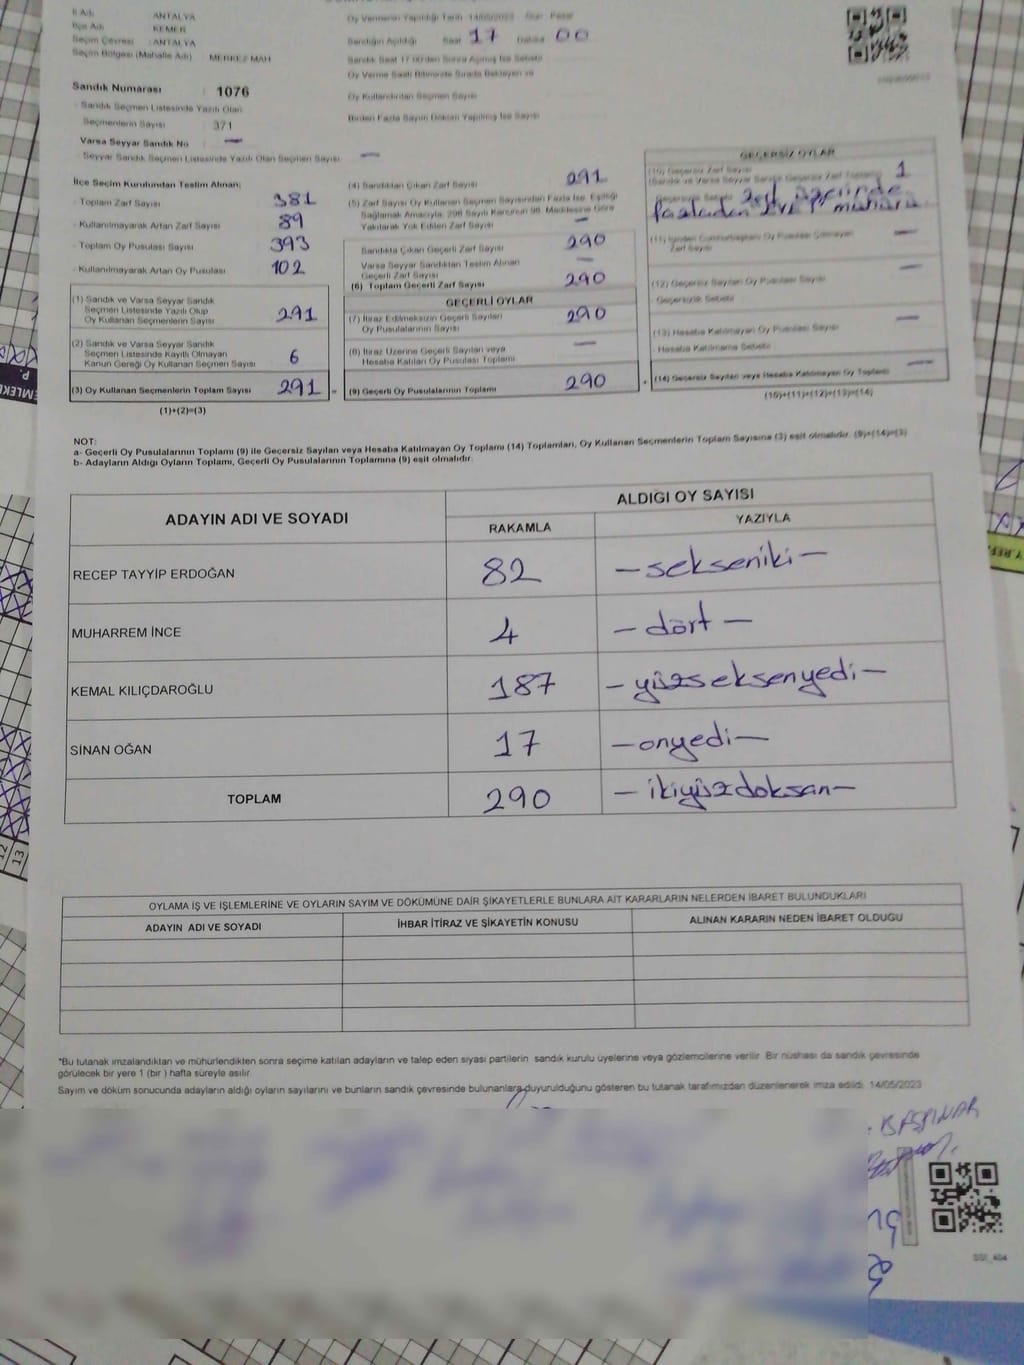 İli Adı ANTALYA
İlçe Adı KEMER
Seçim Çevresi : ANTALYA
Seçim Bölgesi (Mahalle Adı) MERKEZ MAH
Sandık Numarası : 1076
- Sandık Seçmen Listesinde Yazılı Olan
Seçmenlerin Sayısı : 371
Varsa Seyyar Sandık No —
- Seyyar Sandık Seçmen Listesinde Yazılı Olan Seçmen Sayısı —
Oy Vermenin Yapıldığı Tarih 14/05/2023 Gün Pazar
Sandığın Açıldığı Saat 17 Dakika 00
Sandık Saat 17.00'den Sonra Açılmış İse Sebebi
Oy Verme Saati Bitiminde Sırada Bekleyen ve
Oy Kullandırılan Seçmen Sayısı
Birden Fazla Sayım Döküm Yapılmış İse Sayısı
İlçe Seçim Kurulundan Teslim Alınan;
- Toplam Zarf Sayısı 381
- Kullanılmayarak Artan Zarf Sayısı 89
- Toplam Oy Pusulası Sayısı 393
- Kullanılmayarak Artan Oy Pusulası 102
(1) Sandık ve Varsa Seyyar Sandık
Seçmen Listesinde Yazılı Olup
Oy Kullanan Seçmenlerin Sayısı 291
(2) Sandık ve Varsa Seyyar Sandık
Seçmen Listesinde Kayıtlı Olmayan
Kanun Gereği Oy Kullanan Seçmen Sayısı 6
(3) Oy Kullanan Seçmenlerin Toplam Sayısı 291 =
(1)+(2)=(3)
(4) Sandıktan Çıkan Zarf Sayısı 291
(5) Zarf Sayısı Oy Kullanan Seçmen Sayısından Fazla İse, Eşitliği
Sağlamak Amacıyla, 298 Sayılı Kanunun 98. Maddesine Göre
Yakılarak Yok Edilen Zarf Sayısı —
Sandıkta Çıkan Geçerli Zarf Sayısı 290
Varsa Seyyar Sandıktan Teslim Alınan
Geçerli Zarf Sayısı —
(6) Toplam Geçerli Zarf Sayısı 290
GEÇERLİ OYLAR
(7) İtiraz Edilmeksizin Geçerli Sayılan
Oy Pusulalarının Sayısı 290
(8) İtiraz Üzerine Geçerli Sayılan veya
Hesaba Katılan Oy Pusulası Toplamı —
(9) Geçerli Oy Pusulalarının Toplamı 290 +
GEÇERSİZ OYLAR
(10) Geçersiz Zarf Sayısı
(Sandık ve Varsa Seyyar Sandık Geçersiz Zarf Toplamı) 1
Geçersizlik Sebebi zarf üzerinde
fazladan
(11) İçinden Cumhurbaşkanı Oy Pusulası Çıkmayan
Zarf Sayısı —
(12) Geçersiz Sayılan Oy Pusulası Sayısı —
- Geçersizlik Sebebi
(13) Hesaba Katılmayan Oy Pusulası Sayısı —
- Hesaba Katılmama Sebebi
(14) Geçersiz Sayılan veya Hesaba Katılmayan Oy Toplamı —
(10)+(11)+(12)+(13)=(14)
NOT:
a- Geçerli Oy Pusulalarının Toplamı (9) ile Geçersiz Sayılan veya Hesaba Katılmayan Oy Toplamı (14) Toplamları, Oy Kullanan Seçmenlerin Toplam Sayısına (3) eşit olmalıdır. (9)+(14)=(3)
b- Adayların Aldığı Oyların Toplamı, Geçerli Oy Pusulalarının Toplamına (9) eşit olmalıdır.
ADAYIN ADI VE SOYADI ALDIĞI OY SAYISI
RAKAMLA YAZIYLA
RECEP TAYYİP ERDOĞAN 82 —sekseniki—
MUHARREM İNCE 4 —dört—
KEMAL KILIÇDAROĞLU 187 —yüzseksenyedi—
SİNAN OĞAN 17 —onyedi—
TOPLAM 290 —ikiyüzdoksan—
OYLAMA İŞ VE İŞLEMLERİNE VE OYLARIN SAYIM VE DÖKÜMÜNE DAİR ŞİKAYETLERLE BUNLARA AİT KARARLARIN NELERDEN İBARET BULUNDUKLARI
ADAYIN ADI VE SOYADI İHBAR İTİRAZ VE ŞİKAYETİN KONUSU ALINAN KARARIN NEDEN İBARET OLDUĞU
*Bu tutanak imzalandıktan ve mühürlendikten sonra seçime katılan adayların ve talep eden siyasi partilerin sandık kurulu üyelerine veya gözlemcilerine verilir. Bir nüshası da sandık çevresinde
görülecek bir yere 1 (bir ) hafta süreyle asılır.
Sayım ve döküm sonucunda adayların aldığı oyların sayılarını ve bunların sandık çevresinde bulunanlara duyurulduğunu gösteren bu tutanak tarafımızdan düzenlenerek imza edildi. 14/05/2023
BAŞPINAR
12
13